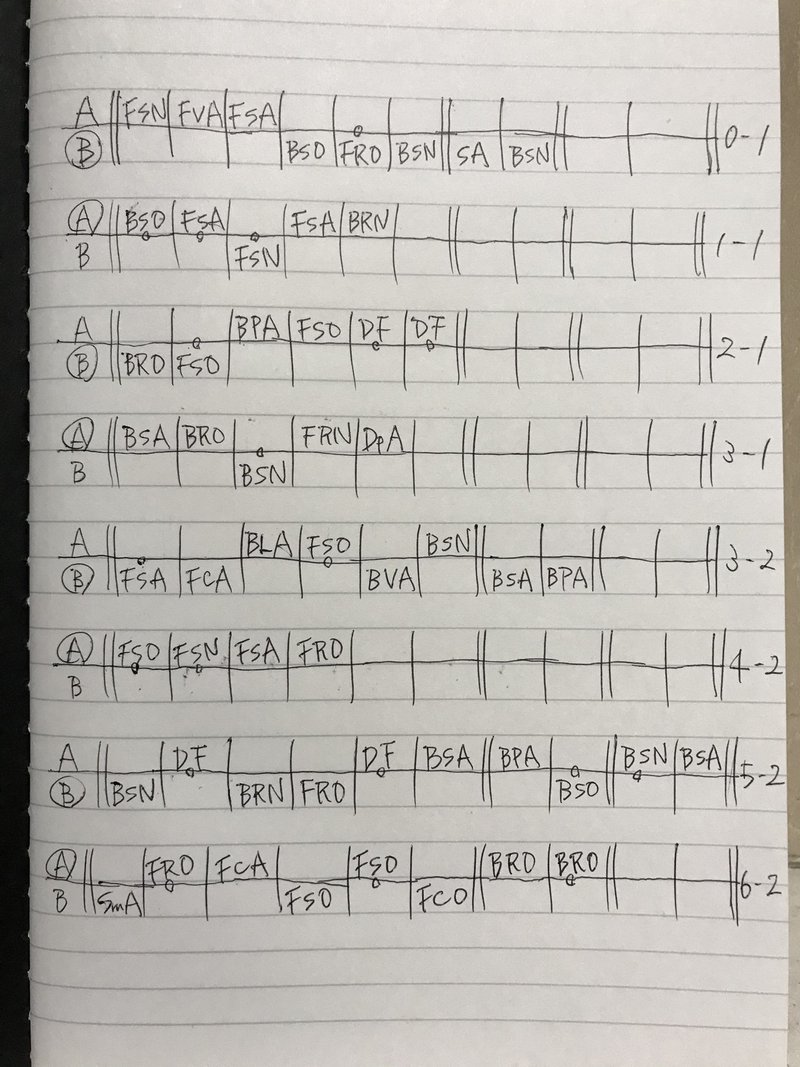 A FSN FVA FSA
Ⓑ BSO FRO BSN SA BSN 0-1
Ⓐ BSO FSA FSA BRN
B FSN 1-1
A BPA FSO DF DF
Ⓑ BRO FSO 2-1
Ⓐ BSA BRO FRN DPA
B BSN 3-1
A BLA FSO BSN
Ⓑ FSA FCA BVA BSA BPA 3-2
Ⓐ FSO FSN FSA FRO
B 4-2
A DF DF BSA BPA BSN BSA
Ⓑ BSN BRN FRO BSO 5-2
Ⓐ FRO FCA FSO BRO BRO
B SmA FSO FCO 6-2